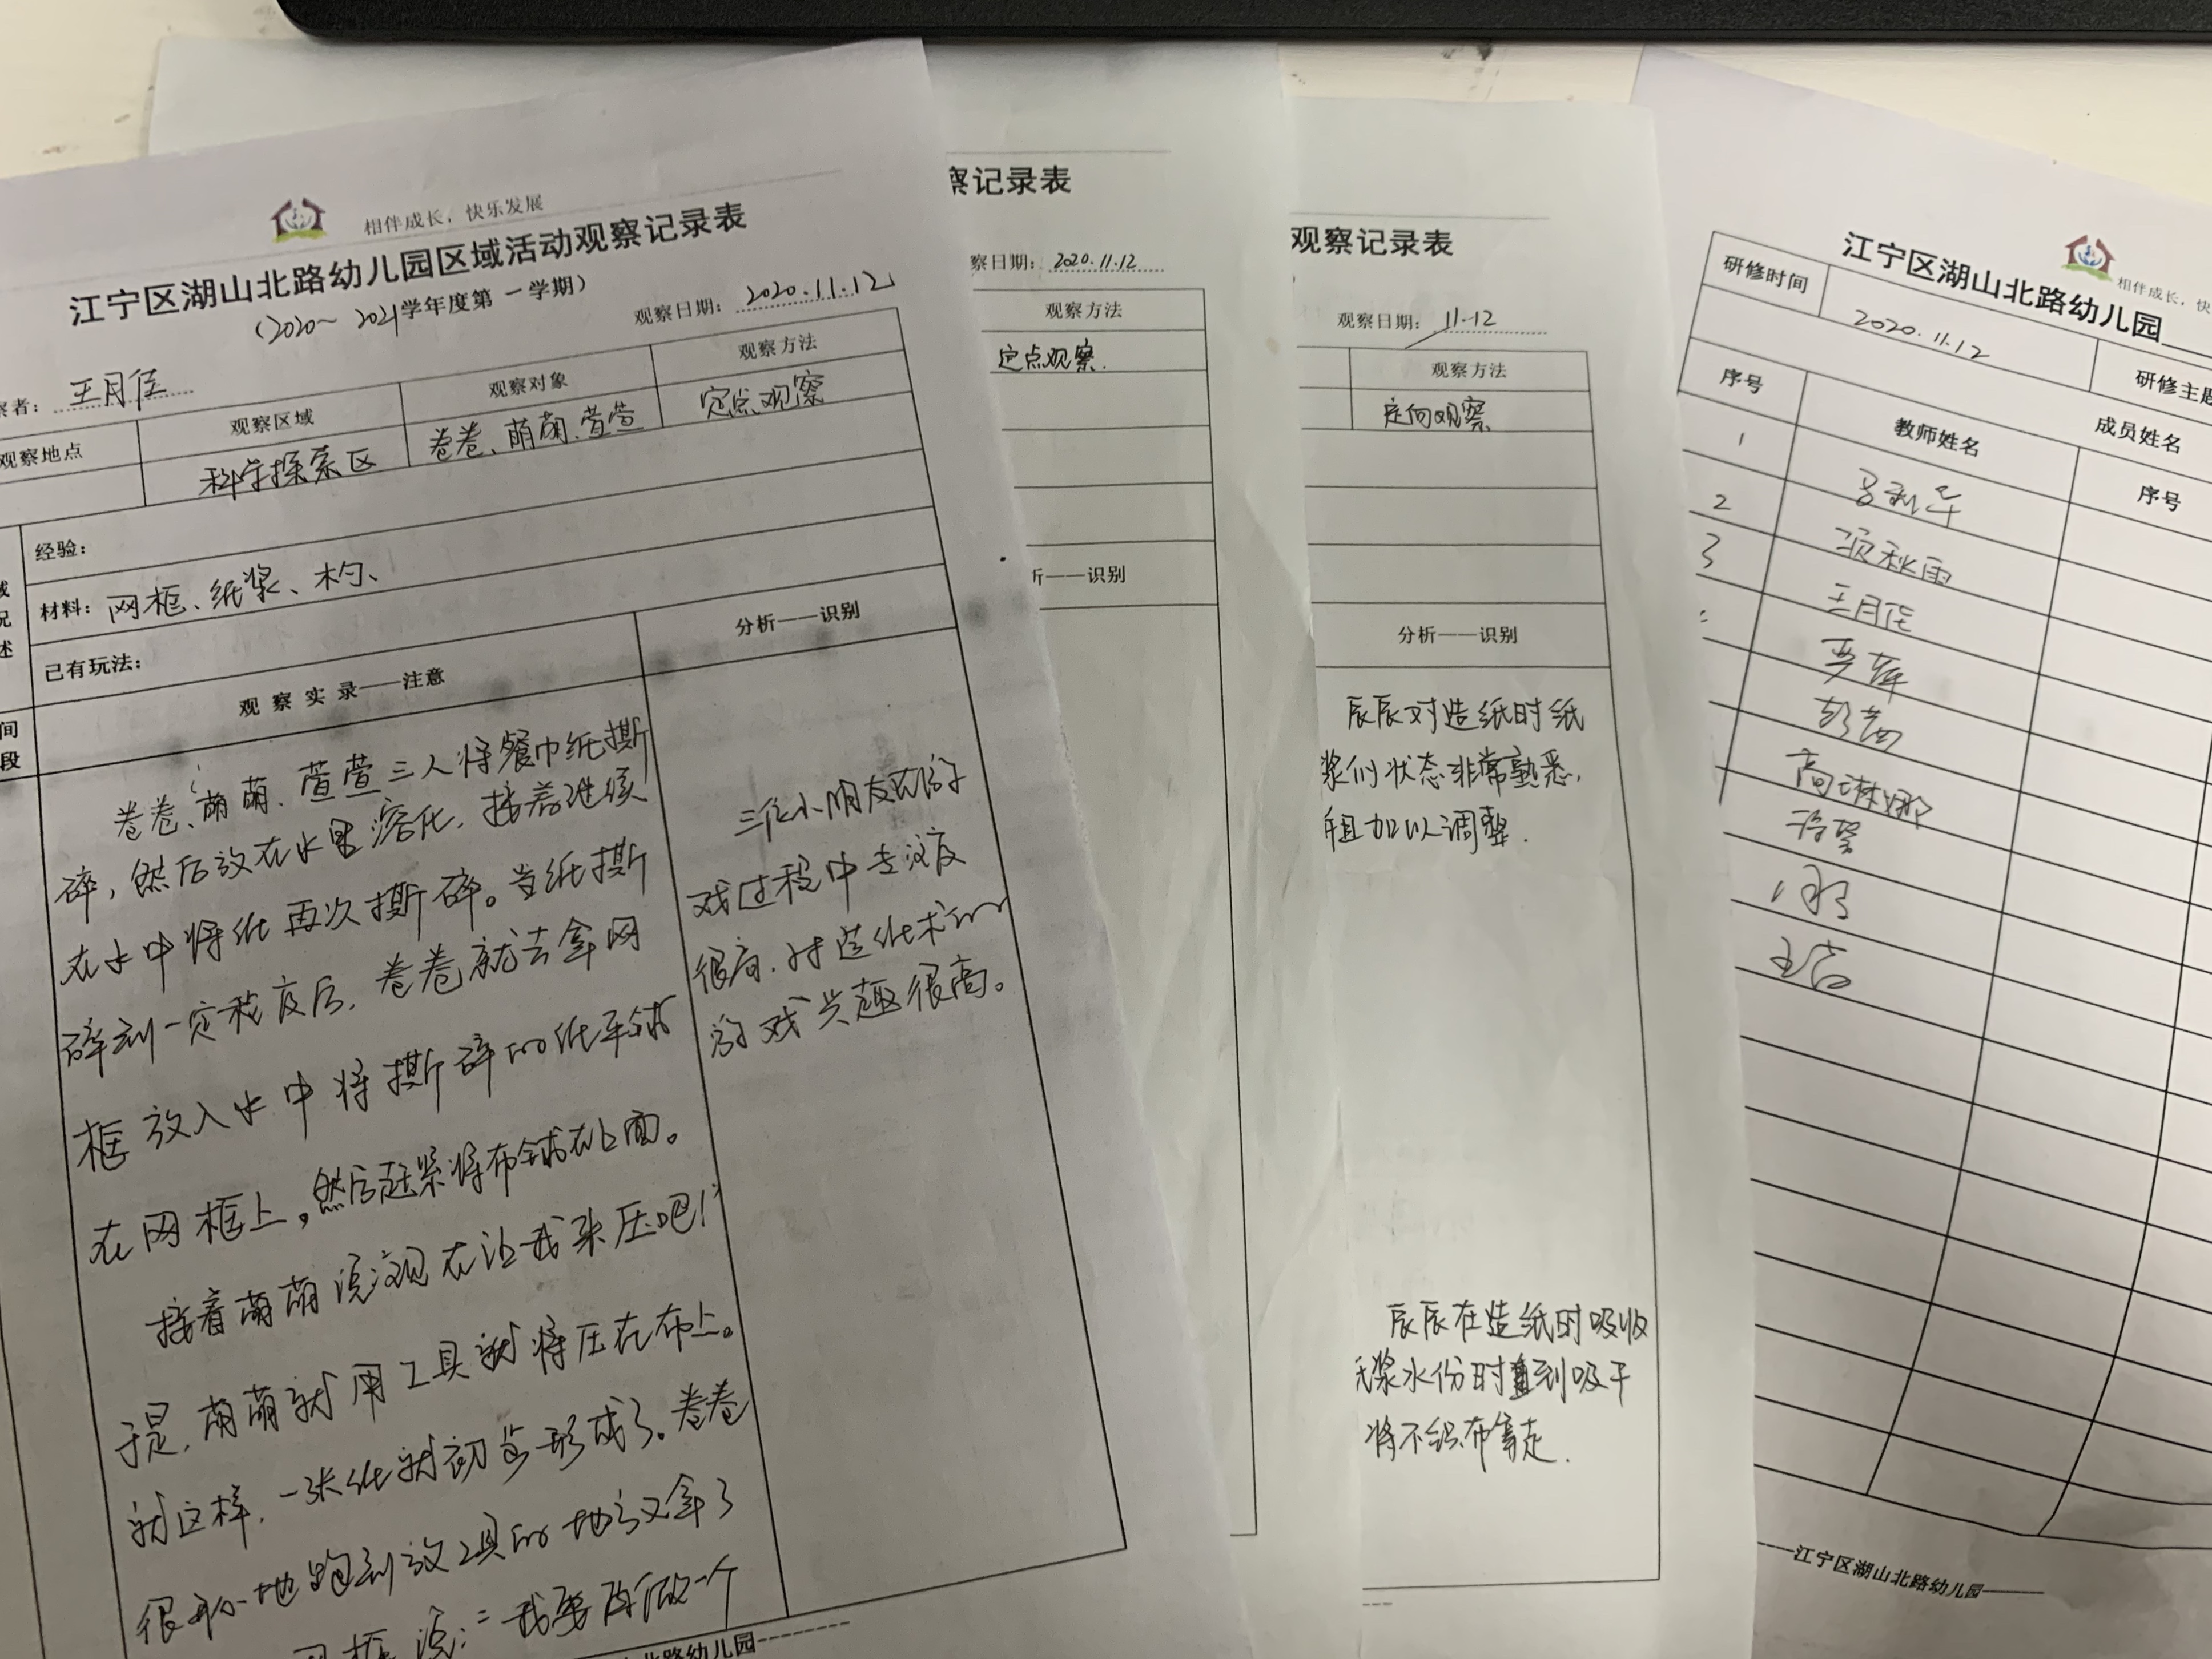 相伴成长，快乐发展
江宁区湖山北路幼儿园区域活动观察记录表
（2020～2021学年度第一学期）
察者：王月佳
观察日期：2020.11.12
观察地点
观察区域
观察对象
观察方法
科学探索区
卷卷、萌萌、萱萱
定点观察
经验：
材料：网框、纸浆、木勺、
已有玩法：
述
间
段
观察实录——注意
分析——识别
卷卷、萌萌、萱萱三人将餐巾纸撕
碎，然后放在水里溶化，接着继续
在水中将纸再次撕碎。当纸撕
碎到一定程度后，卷卷就去拿网
框放入水中将撕碎的纸平铺
在网框上，然后赶紧将布铺在上面。
接着萌萌说：现在让我来压吧！”
于是，萌萌就用工具就将压在布上。
就这样，一张纸就初步形成了。卷卷
很开心地跑到放工具的地方又拿了
网框说：“我要再做一个
三位小朋友在游
戏过程中专注度
很高，对造纸术的
游戏兴趣很高。
北路幼儿园
察记录表
察日期：2020.11.12
观察方法
定点观察.
析——识别
观察记录表
观察日期：11.12
观察方法
定向观察
分析——识别
辰辰对造纸时纸
浆的状态非常熟悉，
加以调整.
辰辰在造纸时吸收
浆水份时直到吸干
将不织布拿走.
相伴成长，快
江宁区湖山北路幼儿园
研修时间
2020.11.12
研修主题
成员姓名
序号
教师姓名
序号
1
2
3
项秋雨
王月佳
高琳娜
江宁区湖山北路幼儿园